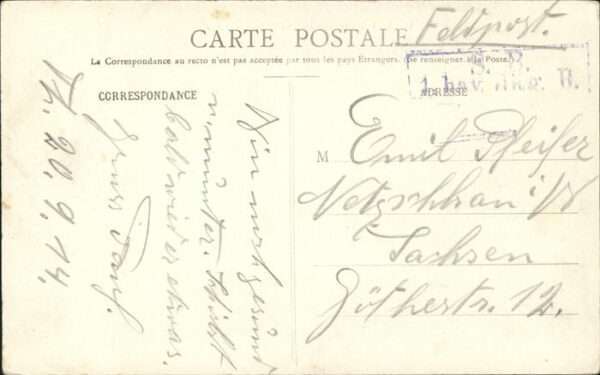 CARTE POSTALE
Feldpost.
La Correspondance au recto n'est pas acceptée par tous les pays Etrangers. (Se renseigner à la Poste.)
CORRESPONDANCE
ADRESSE
S. B.
1. bay.
Fr. 20. 9. 14.
Bin noch gesund
u. munter. Schickt
bald wieder etwas.
Gruss Paul.
M Emil Pfeifer
Netzschkau i/V
Sachsen
Göthestr. 12.